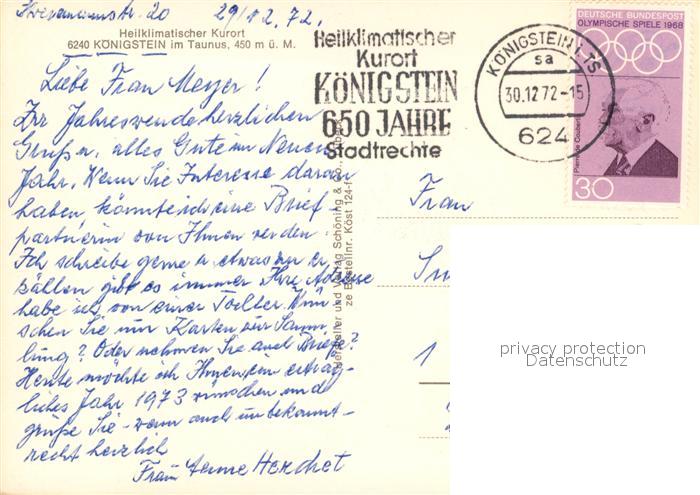 29/12.72.
Heilklimatischer Kurort
6240 KÖNIGSTEIN im Taunus, 450 m ü. M.
Liebe Frau Meyer!
Zur Jahreswende herzlichen
Grüße, alles Gute im Neuen
Jahr. Wenn Sie Interesse daran
haben könnte ich eine Brief
partnerin von Ihnen werden
Ich schreibe gerne u etwas zu er
zählen gibt es immer Ihre Adresse
habe ich von einer Tochter. Wün
schen Sie nur Karten zur Samm
lung? Oder nehmen Sie auch Briefe?
Heute möchte ich Ihnen ein erträg-
liches Jahr 1973 wünschen und
grüße Sie - wenn auch unbekannt-
recht herzlich
Frau Anne
Heilklimatischer
Kurort
KÖNIGSTEIN
650 JAHRE
Stadtrechte
KÖNIGSTEIN 1, TS
sa
30.12.72-15
624
DEUTSCHE BUNDESPOST
OLYMPISCHE SPIELE 1968
Pierre de Coubertin
30
Hersteller und Verlag Schöning & Co.
Bestellnr. Köst 124-f
Frau
1
privacy protection
Datenschutz